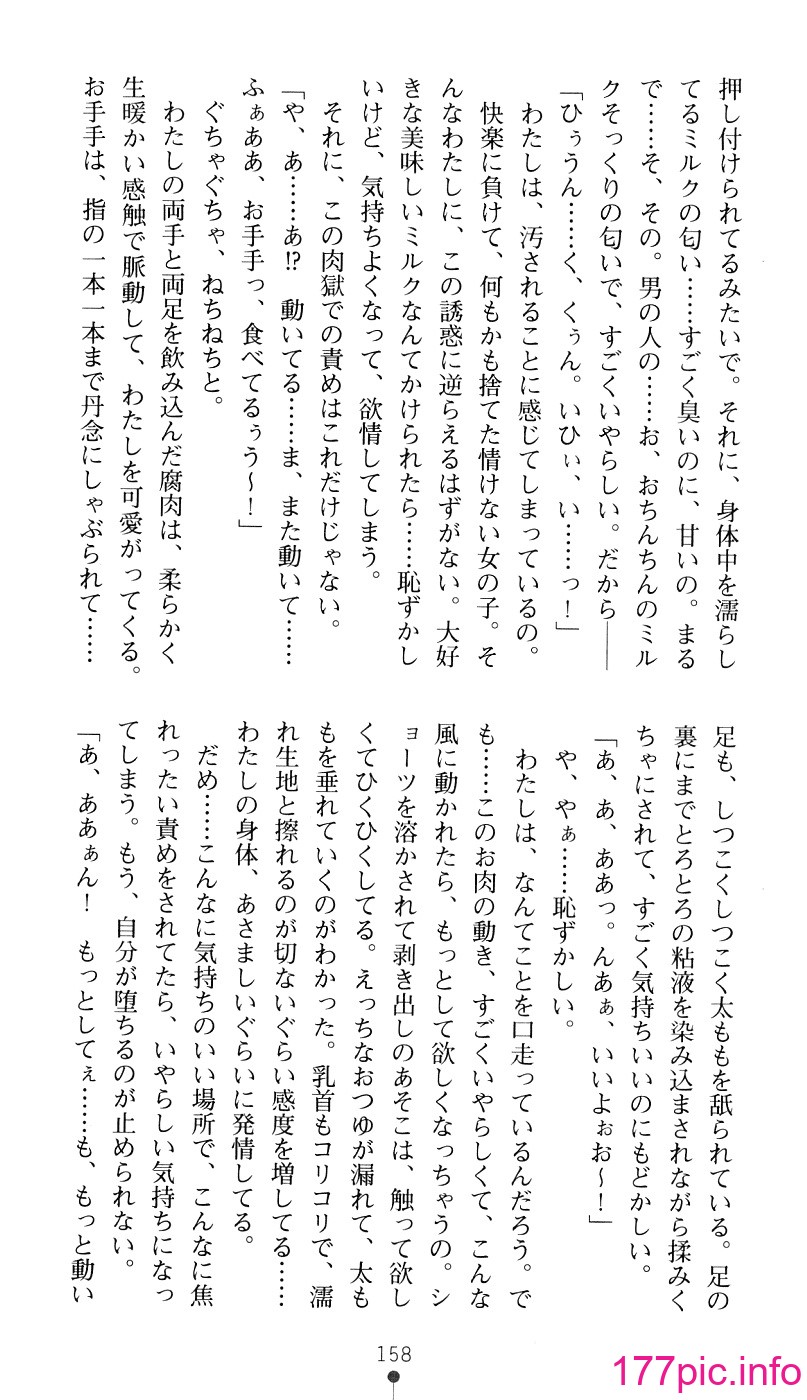 押し付けられてるみたいで。それに、身体中を濡らし
てるミルクの匂い……すごく臭いのに、甘いの。まる
で……そ、その。男の人の……お、おちんちんのミル
クそっくりの匂いで、すごくいやらしい。だから――
「ひぅうん……く、くぅん。いひぃ、い……っ！」
わたしは、汚されることに感じてしまっているの。
快楽に負けて、何もかも捨てた情けない女の子。そ
んなわたしに、この誘惑に逆らえるはずがない。大好
きな美味しいミルクなんてかけられたら……恥ずかし
いけど、気持ちよくなって、欲情してしまう。
それに、この肉獄での責めはこれだけじゃない。
「や、あ……あ⁉　動いてる……ま、また動いて……
ふぁああ、お手手っ、食べてるぅう～！」
ぐちゃぐちゃ、ねちねちと。
わたしの両手と両足を飲み込んだ腐肉は、柔らかく
生暖かい感触で脈動して、わたしを可愛がってくる。
お手手は、指の一本一本まで丹念にしゃぶられて……
足も、しつこくしつこく太ももを舐られている。足の
裏にまでとろとろの粘液を染み込まされながら揉みく
ちゃにされて、すごく気持ちいいのにもどかしい。
「あ、あ、ああっ。んあぁ、いいよぉお～！」
や、やぁ……恥ずかしい。
わたしは、なんてことを口走っているんだろう。で
も……このお肉の動き、すごくいやらしくて、こんな
風に動かれたら、もっとして欲しくなっちゃうの。シ
ョーツを溶かされて剥き出しのあそこは、触って欲し
くてひくひくしてる。えっちなおつゆが漏れて、太も
もを垂れていくのがわかった。乳首もコリコリで、濡
れ生地と擦れるのが切ないぐらい感度を増してる……
わたしの身体、あさましいぐらいに発情してる。
だめ……こんなに気持ちのいい場所で、こんなに焦
れったい責めをされてたら、いやらしい気持ちになっ
てしまう。もう、自分が堕ちるのが止められない。
「あ、ああぁん！　もっとしてぇ……も、もっと動い
158
177pic.info